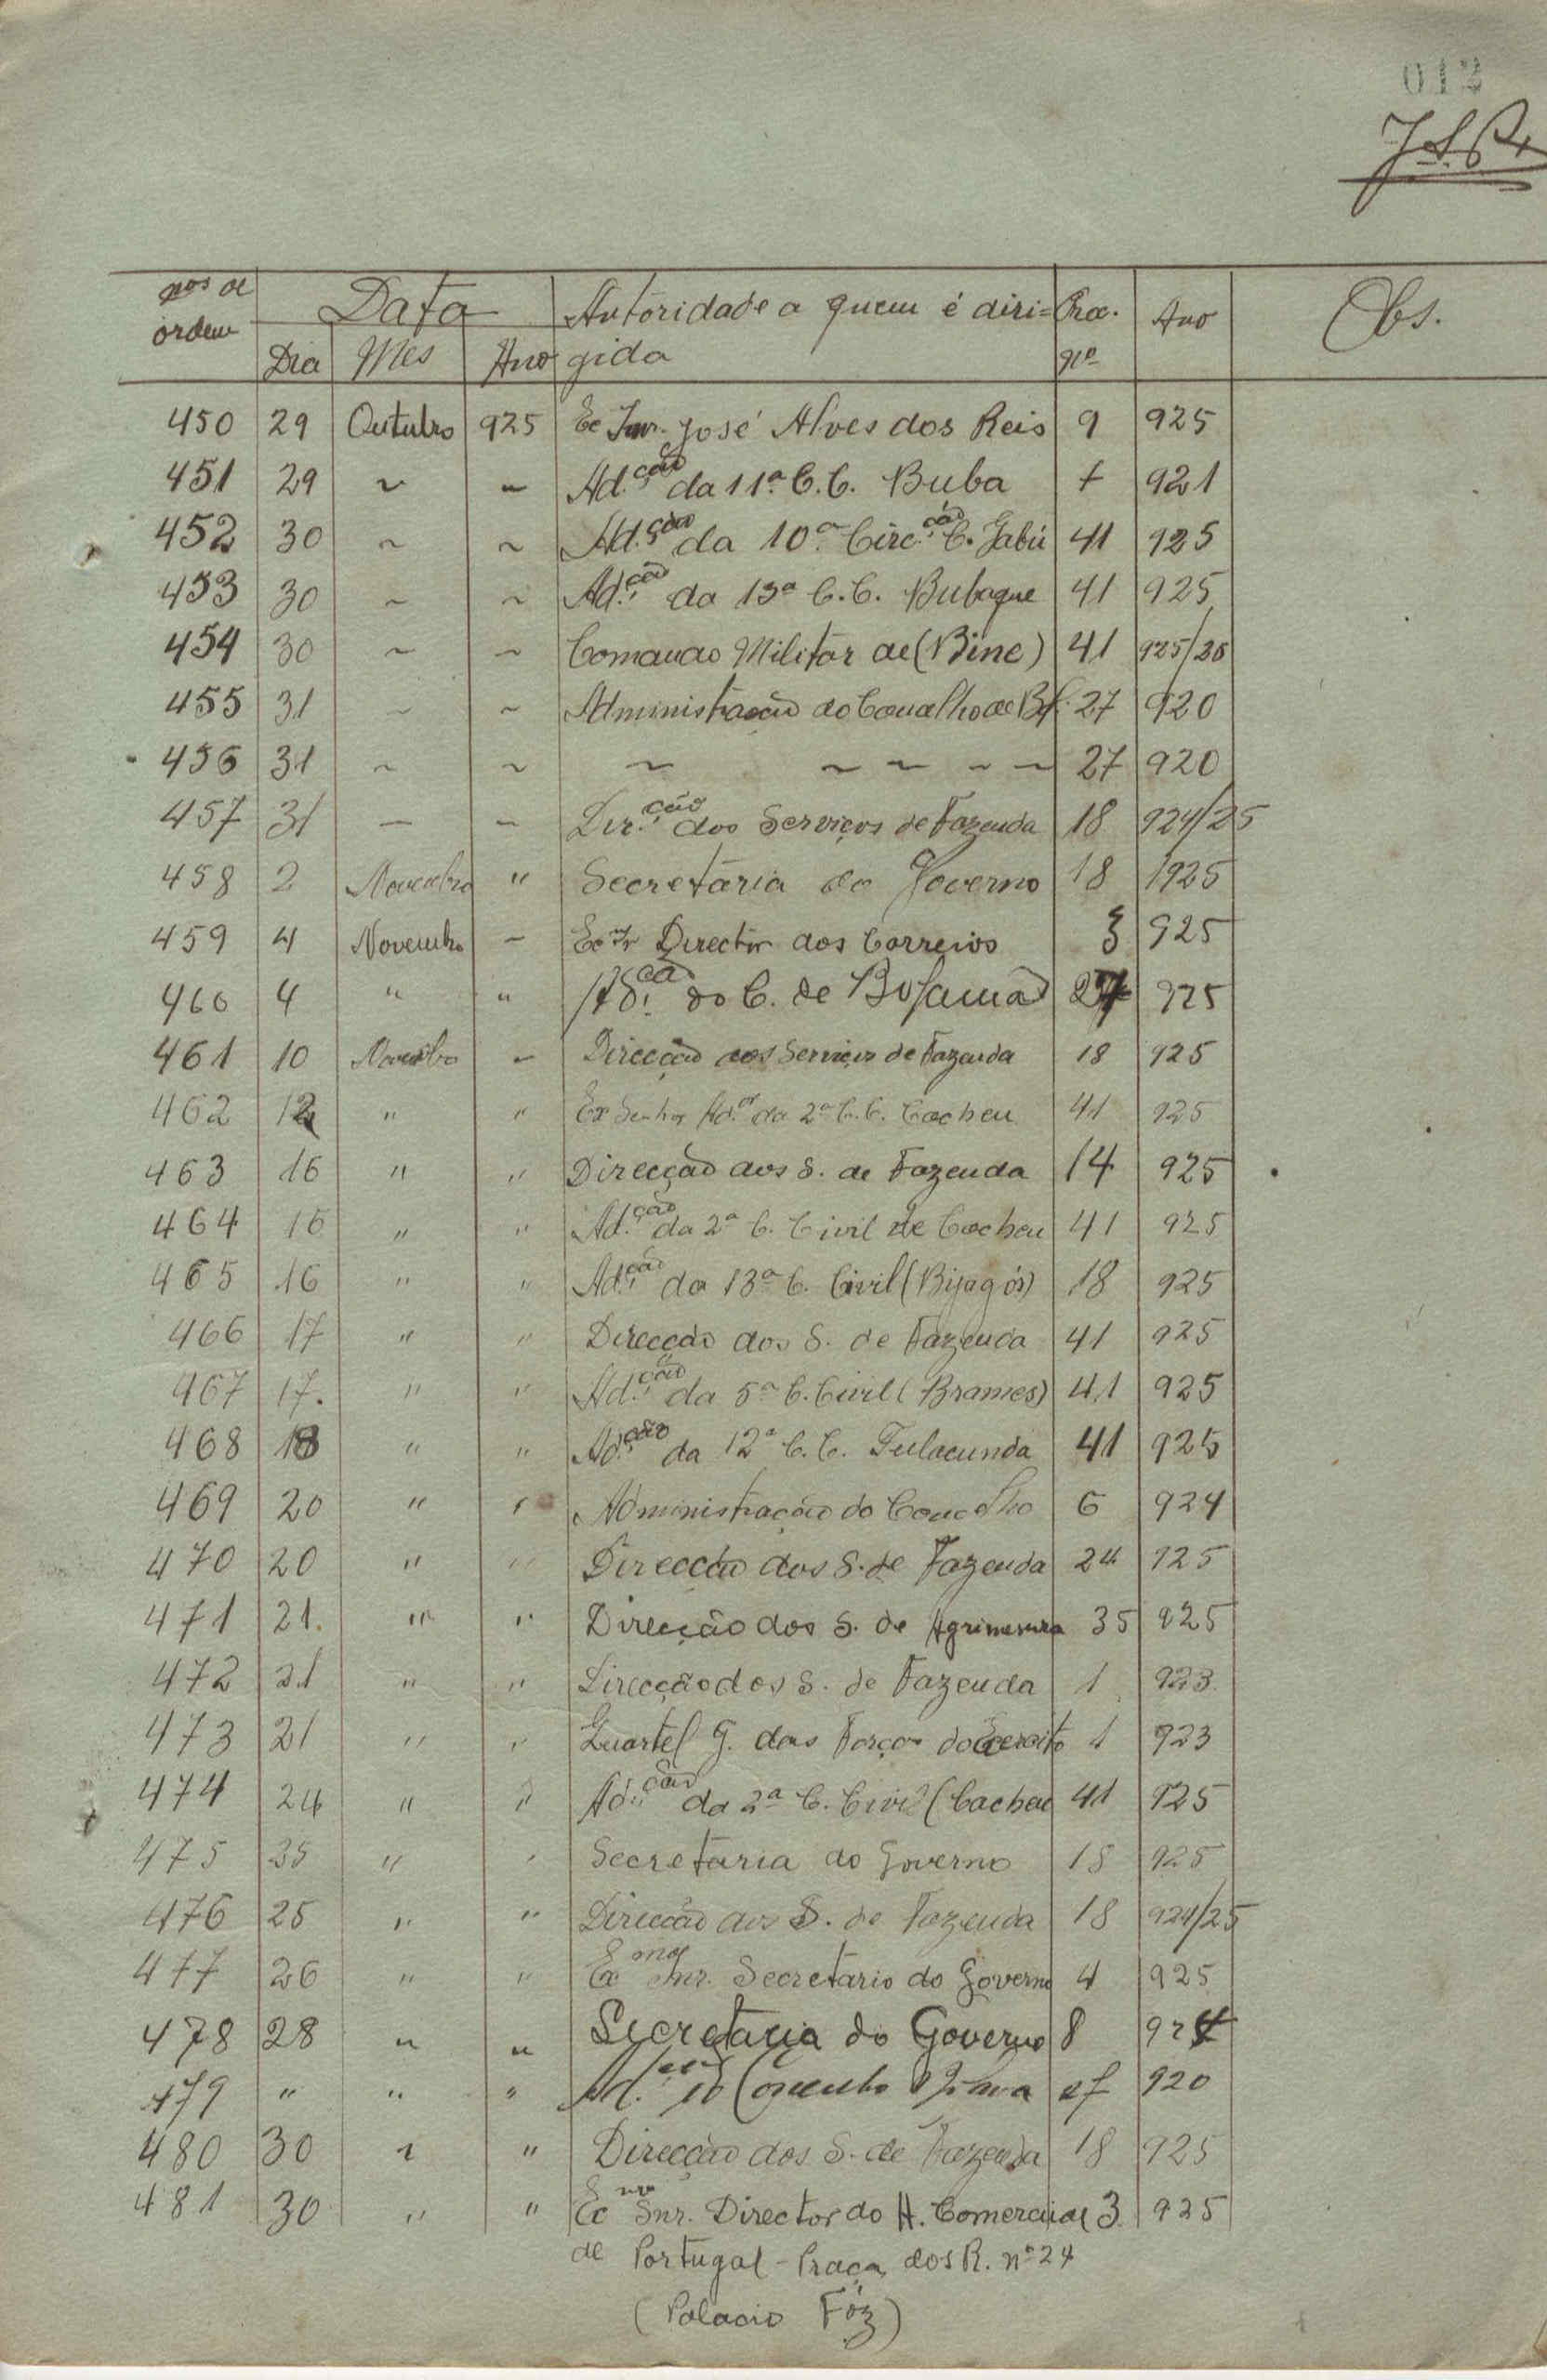 012
nos de ordem Data Autoridade a quem é diri= Proc. Ano Obs.
Dia Mês Ano gida nº
450 29 Outubro 925 Ex Snr. José Alves dos Reis 9 925
451 29 ~ ~ Ad.ção da 11ª C.C. Buba 921
452 30 ~ ~ Ad.ção da 10ª Circ.ção C. Gabú 41 925
453 30 ~ ~ Ad.ção da 13ª C.C. Bubaque 41 925
454 30 ~ ~ Comando Militar de (Bine) 41 925/26
455 31 ~ ~ Administração do Concelho de 27 920
456 31 ~ ~ ~ ~ ~ ~ ~ 27 920
457 31 — ~ Dir.ção dos Serviços de Fazenda 18 924/25
458 2 Novembro " Secretaria do Governo 18 1925
459 4 Novembro ~ Director dos Correios 3 925
460 4 " " Ad.ção do C. de Bolama 27 925
461 10 Novembro ~ Direcção dos Serviços de Fazenda 18 925
462 12 " " Ex Senhor Ad.or da 2ª C.C. Cacheu 41 925
463 16 " " Direcção dos S. de Fazenda 14 925
464 16 " " Ad.ção da 2ª C. Civil de Cacheu 41 925
465 16 " " Ad.ção da 13ª C. Civil (Bijagós) 18 925
466 17 " " Direcção dos S. de Fazenda 41 925
467 17. " " Ad.ção da 5ª C. Civil (Brames) 41 925
468 18 " " Ad.ção da 12ª C.C. Fulacunda 41 925
469 20 " " Administração do Concelho 6 924
470 20 " " Direcção dos S. de Fazenda 24 925
471 21. " " Direcção dos S. de Agrimensura 35 925
472 21 " " Direcção dos S. de Fazenda 1 923
473 21 " " Quartel G. das Forças do Exercito 1 923
474 24 " " Ad.ção da 2ª C. Civil (Cacheu 41 925
475 25 " " Secretaria do Governo 18 925
476 25 " " Direcção dos S. de Fazenda 18 924/25
477 26 " " Exmo Snr. Secretario do Governo 4 925
478 28 " " Secretaria do Governo 8 924
479 " " " 920
480 30 " " Direcção dos S. de Fazenda 18 925
481 30 " " Exmo Snr. Director do A. Comercial 3 925
de Portugal - Praça dos R. nº 24
(Palacio Fóz)